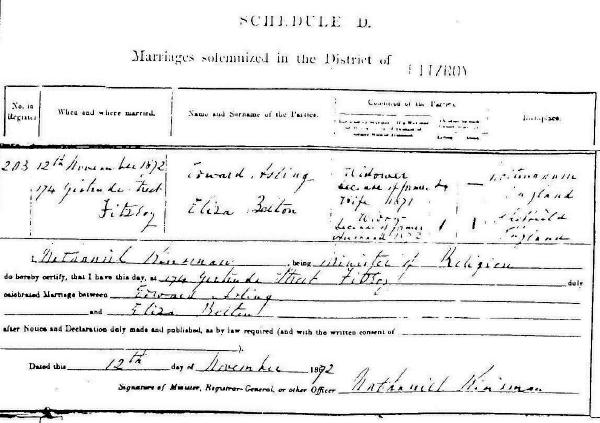 SCHEDULE D.
Marriages solemnized in the District of FITZROY
No. in Register
When and where married.
Name and Surname of the Parties.
Condition of the Parties.
Birthplace.
203 12th November 1872 Edward Asling Widower
174 Gertrude Street decease of former 4
Wife 1871 England
Fitzroy Eliza Bolton Widow
decease of former 1 1 Sheffield
England
Nathaniel Kinsman being Minister of Religion
do hereby certify, that I have this day, at 174 Gertrude Street Fitzroy duly
celebrated Marriage between Edward Asling
and Eliza Bolton
after Notice and Declaration duly made and published, as by law required (and with the written consent of
).
Dated this 12th day of November 1872
Signature of Minister, Registrar-General, or other Officer Nathaniel Kinsman